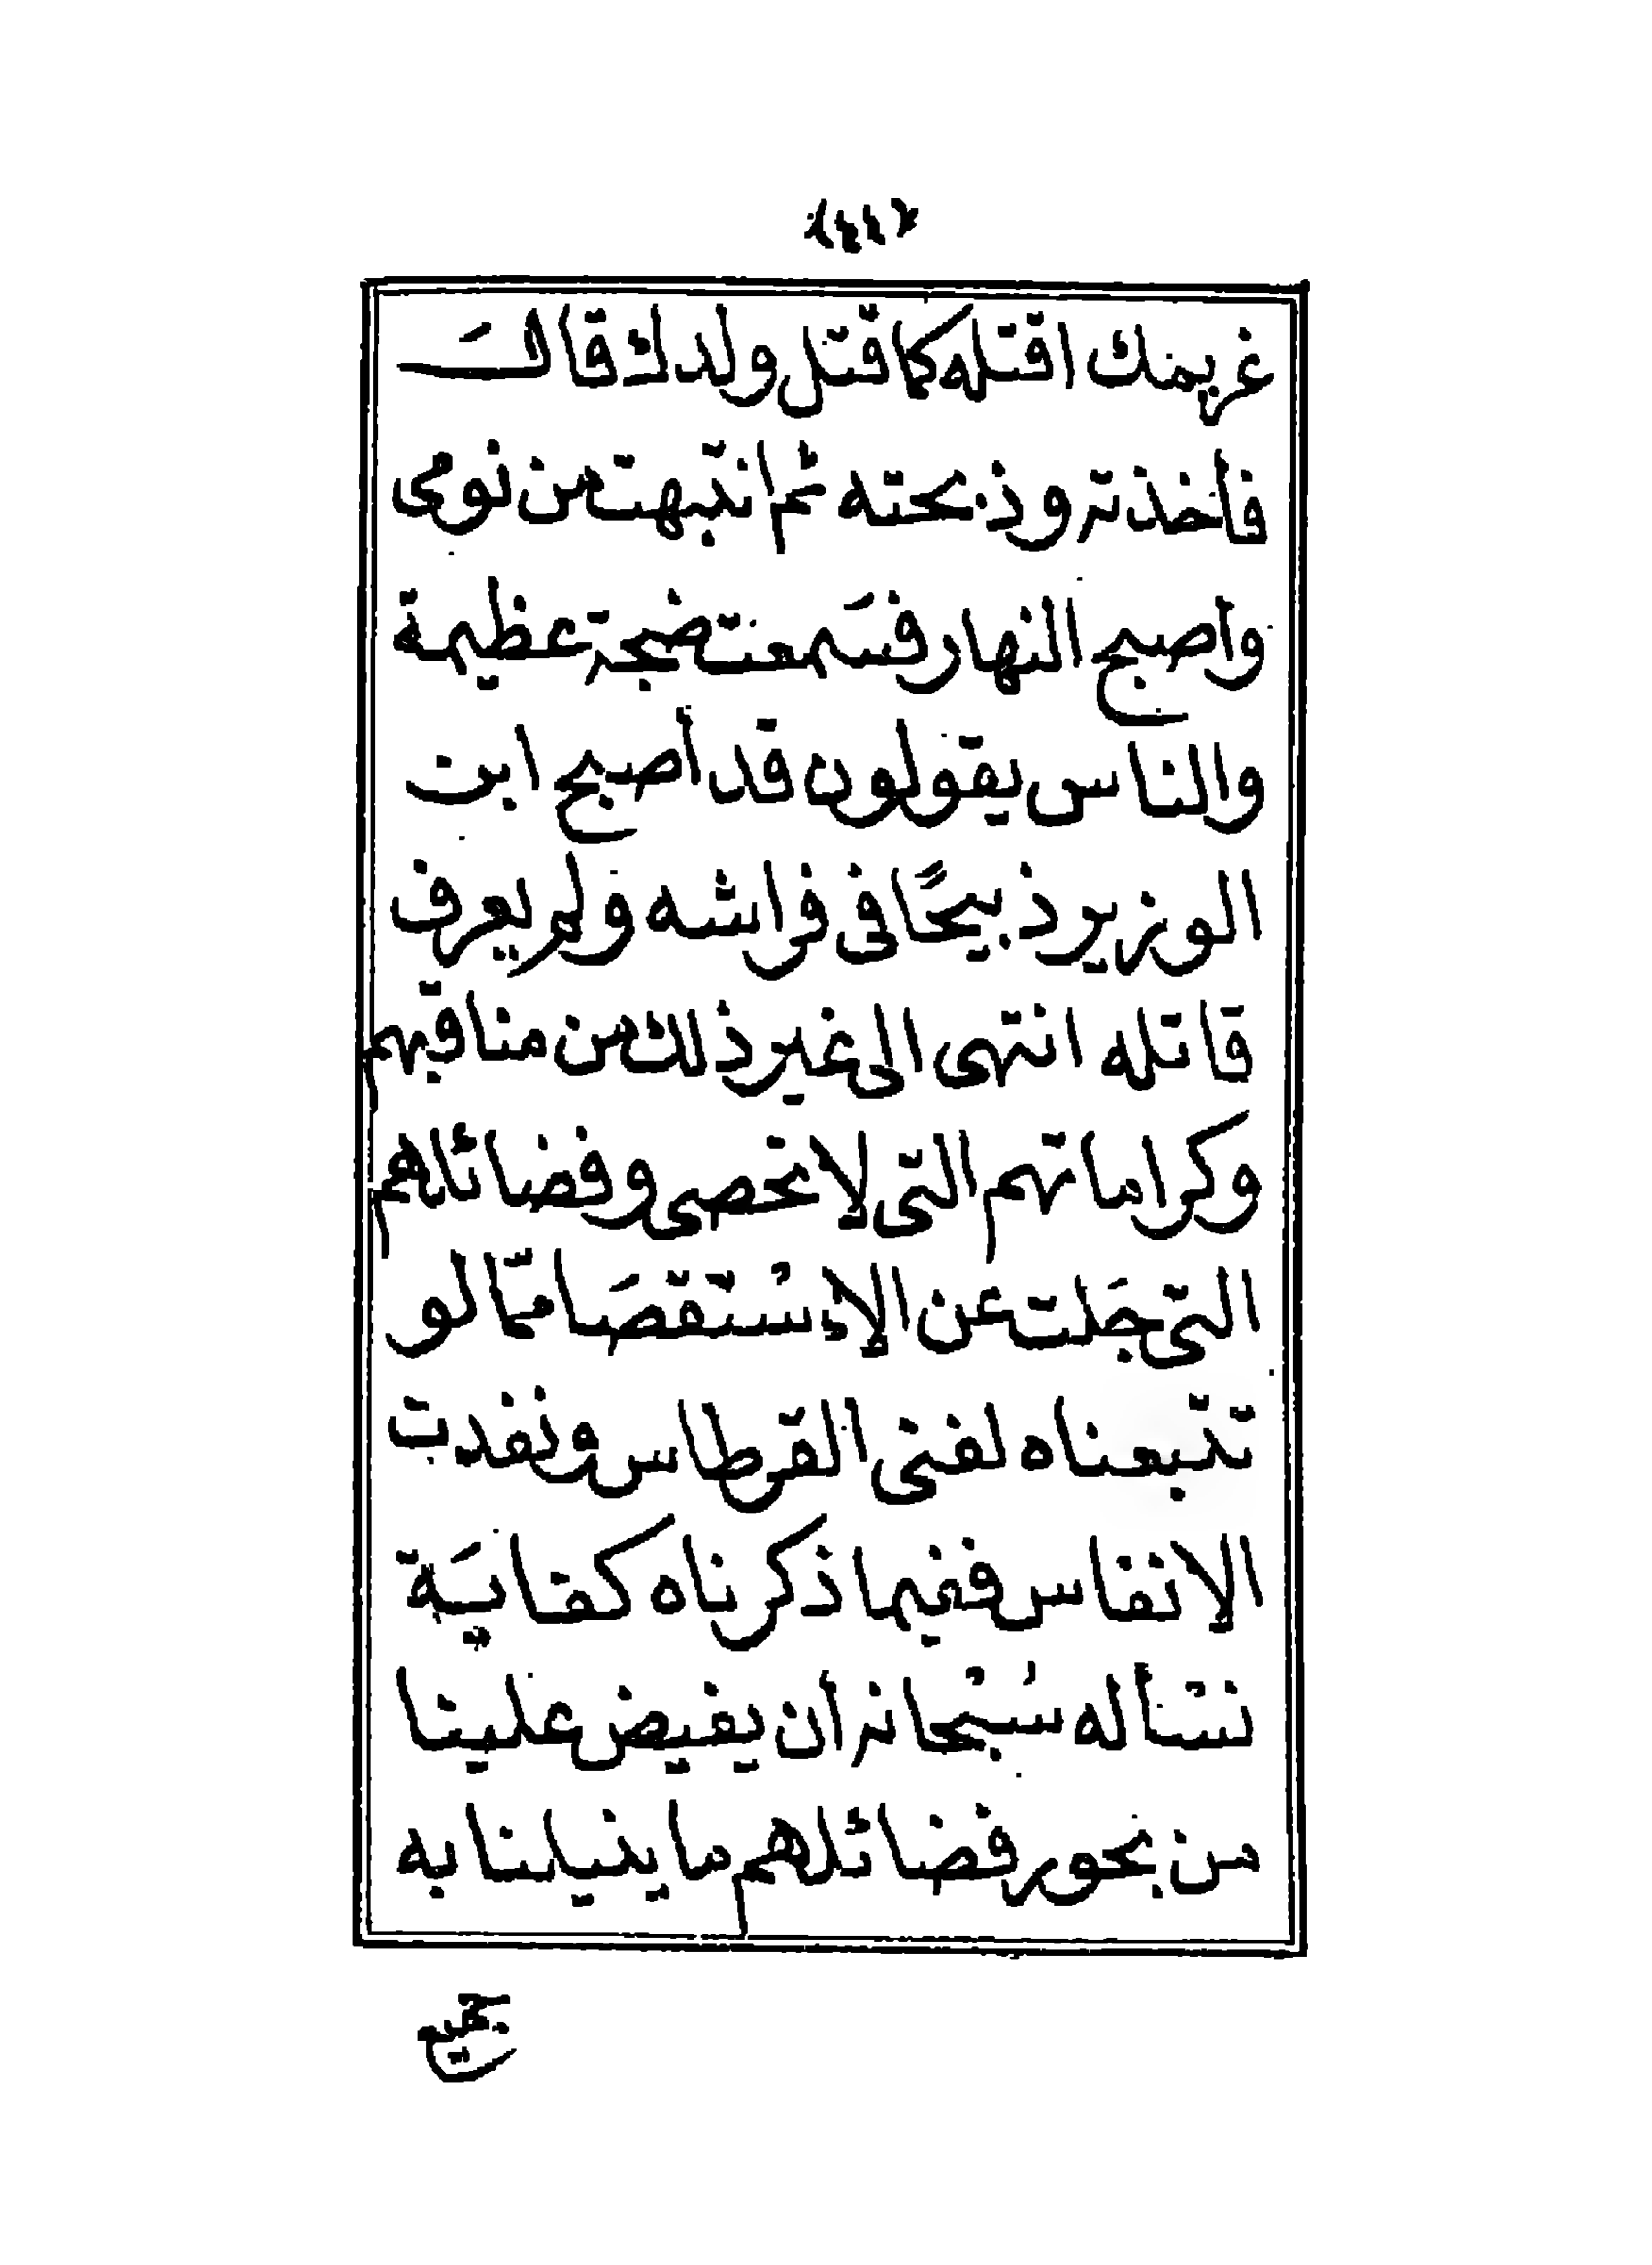 غريمك اقتله كما قتل ولدك قالَ
فأخذته وذبحته ثم انتبهت من نومى
وأصبح النهار فسَمعت ضجة عظيمة
والناس يقولون قد أصبح ابن
الوزير ذبيحًا فى فراشه ولم يعرف
قاتله انتهى الى غير ذلك من مناقبهم
وكراماتهم التى لا تحصى وفضائلهم
التى جَلت عن الإسْتقصَا ممّا لو
تتبّعناه لفنى القرطاس ونفدت
الانفاس ففيما ذكرناه كفايَة
نسْأله سُبْحانه أن يفيض علينا
من بحور فضائلهم ما ينيلنا به
جميع